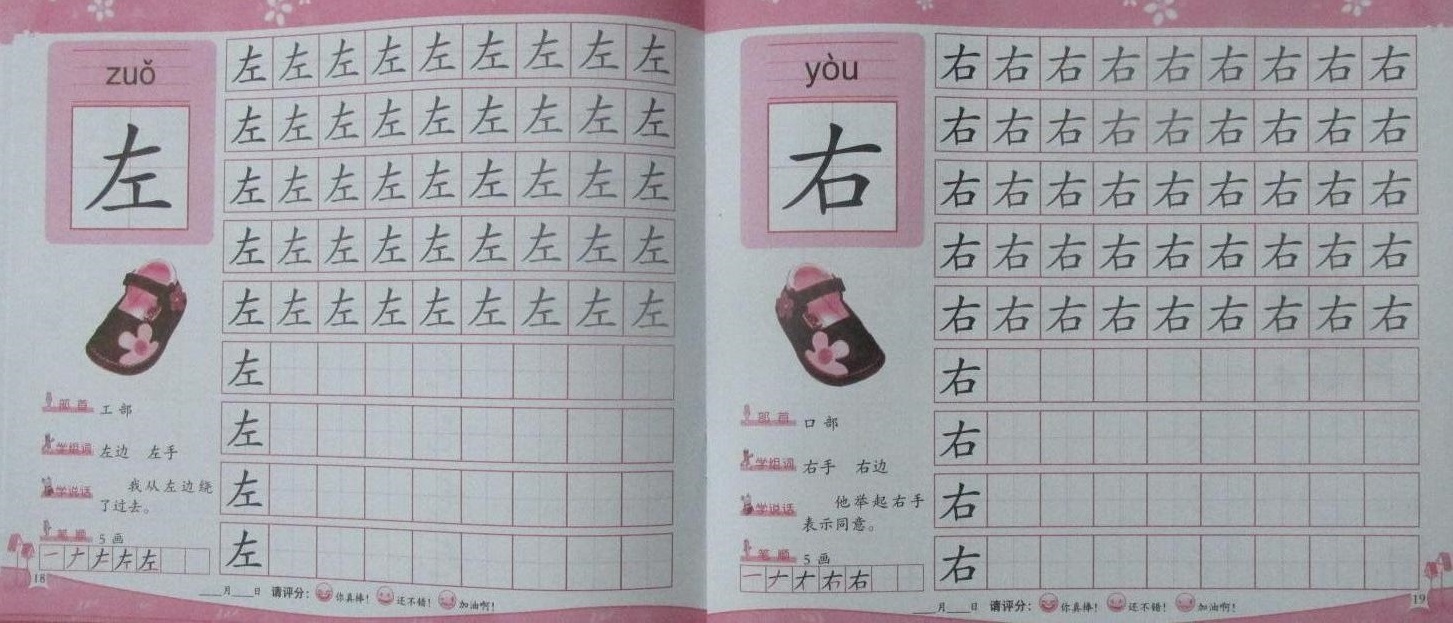 zuǒ
左
左左左左左左左左左
左左左左左左左左左
左左左左左左左左左
左左左左左左左左左
左左左左左左左左左
左
左
左
左
部首 工部
学组词 左边 左手
学说话 我从左边绕
了过去。
笔顺 5画
一 𠂇 左
18
月 日 请评分: 你真棒! 还不错! 加油啊!
yòu
右
右右右右右右右右右
右右右右右右右右右
右右右右右右右右右
右右右右右右右右右
右右右右右右右右右
右
右
右
右
部首 口部
学组词 右手 右边
学说话 他举起右手
表示同意。
笔顺 5画
一 𠂇 右
月 日 请评分: 你真棒! 还不错! 加油啊!
19